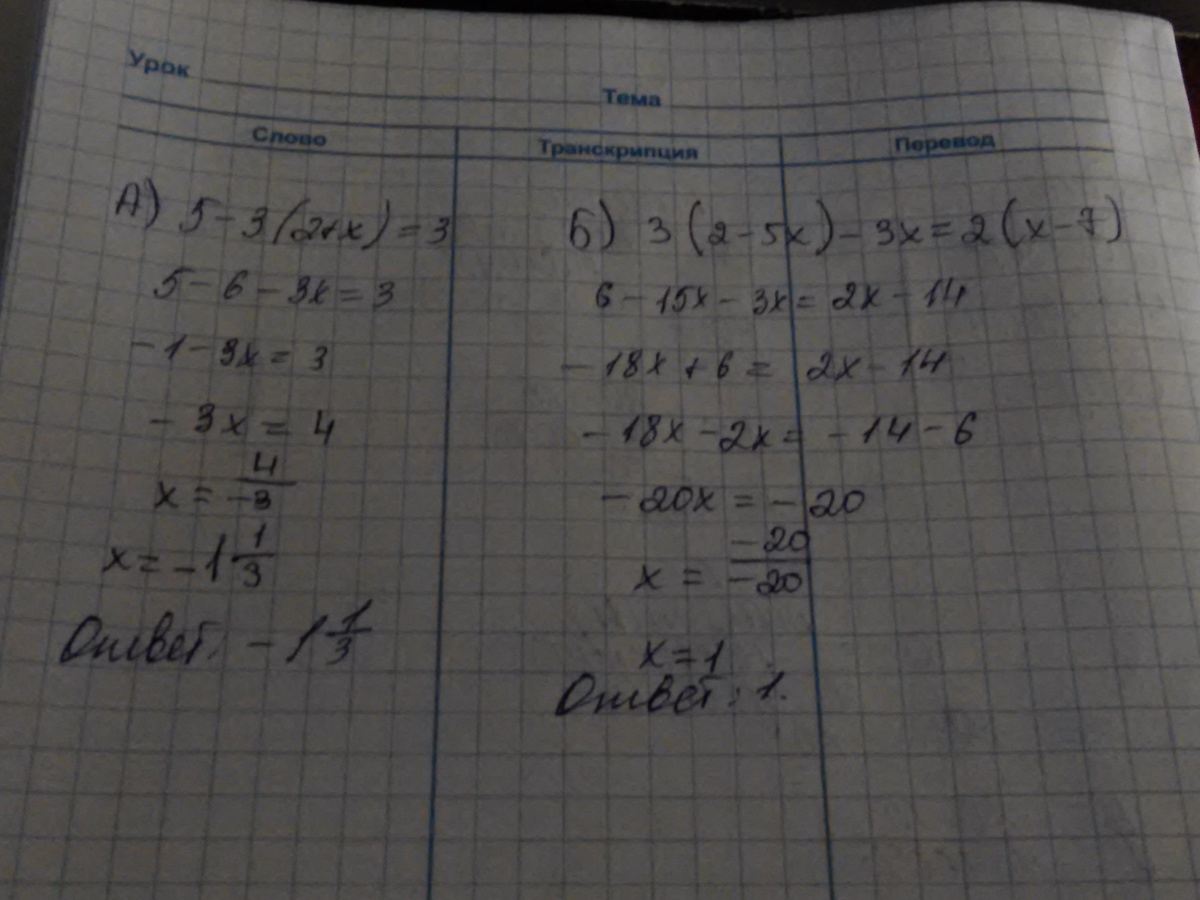 Урок
Тема
Слово
Транскрипция
Перевод
А) 5 - 3(2+x) = 3
5 - 6 - 3x = 3
- 1 - 3x = 3
- 3x = 4
x = 4/-3
x = -1 1/3
Ответ: - 1 1/3
Б) 3(2 - 5x) - 3x = 2(x - 7)
6 - 15x - 3x = 2x - 14
- 18x + 6 = 2x - 14
- 18x - 2x = - 14 - 6
- 20x = - 20
x = -20/-20
x = 1
Ответ: 1.